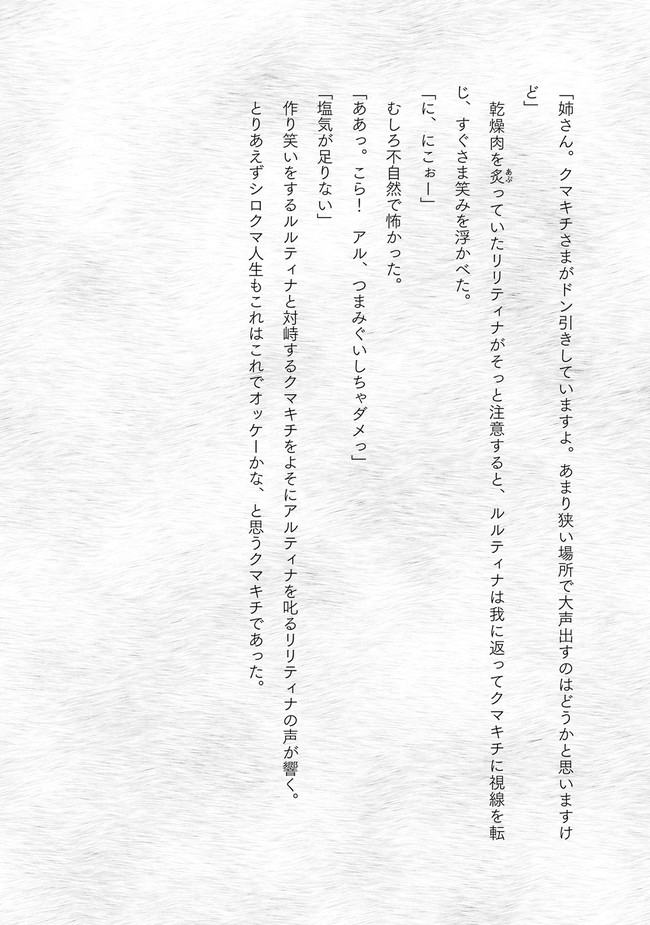 「姉さん。クマキチさまがドン引きしていますよ。あまり狭い場所で大声出すのはどうかと思いますけ
ど」
　乾燥肉を炙っていたリリティナがそっと注意すると、ルルティナは我に返ってクマキチに視線を転
じ、すぐさま笑みを浮かべた。
「に、にこぉー」
　むしろ不自然で怖かった。
「ああっ。こら！　アル、つまみぐいしちゃダメっ」
「塩気が足りない」
　作り笑いをするルルティナと対峙するクマキチをよそにアルティナを叱るリリティナの声が響く。
　とりあえずシロクマ人生もこれはこれでオッケーかな、と思うクマキチであった。
あぶ